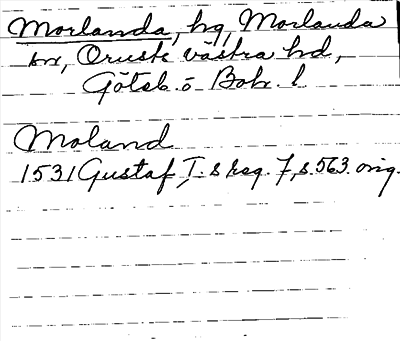 Morlanda, hg, Morlanda
sn, Orusts västra hd,
Göteb. o Boh. l
Moland
1531 Gustaf I:s reg. 7, s. 563. orig.